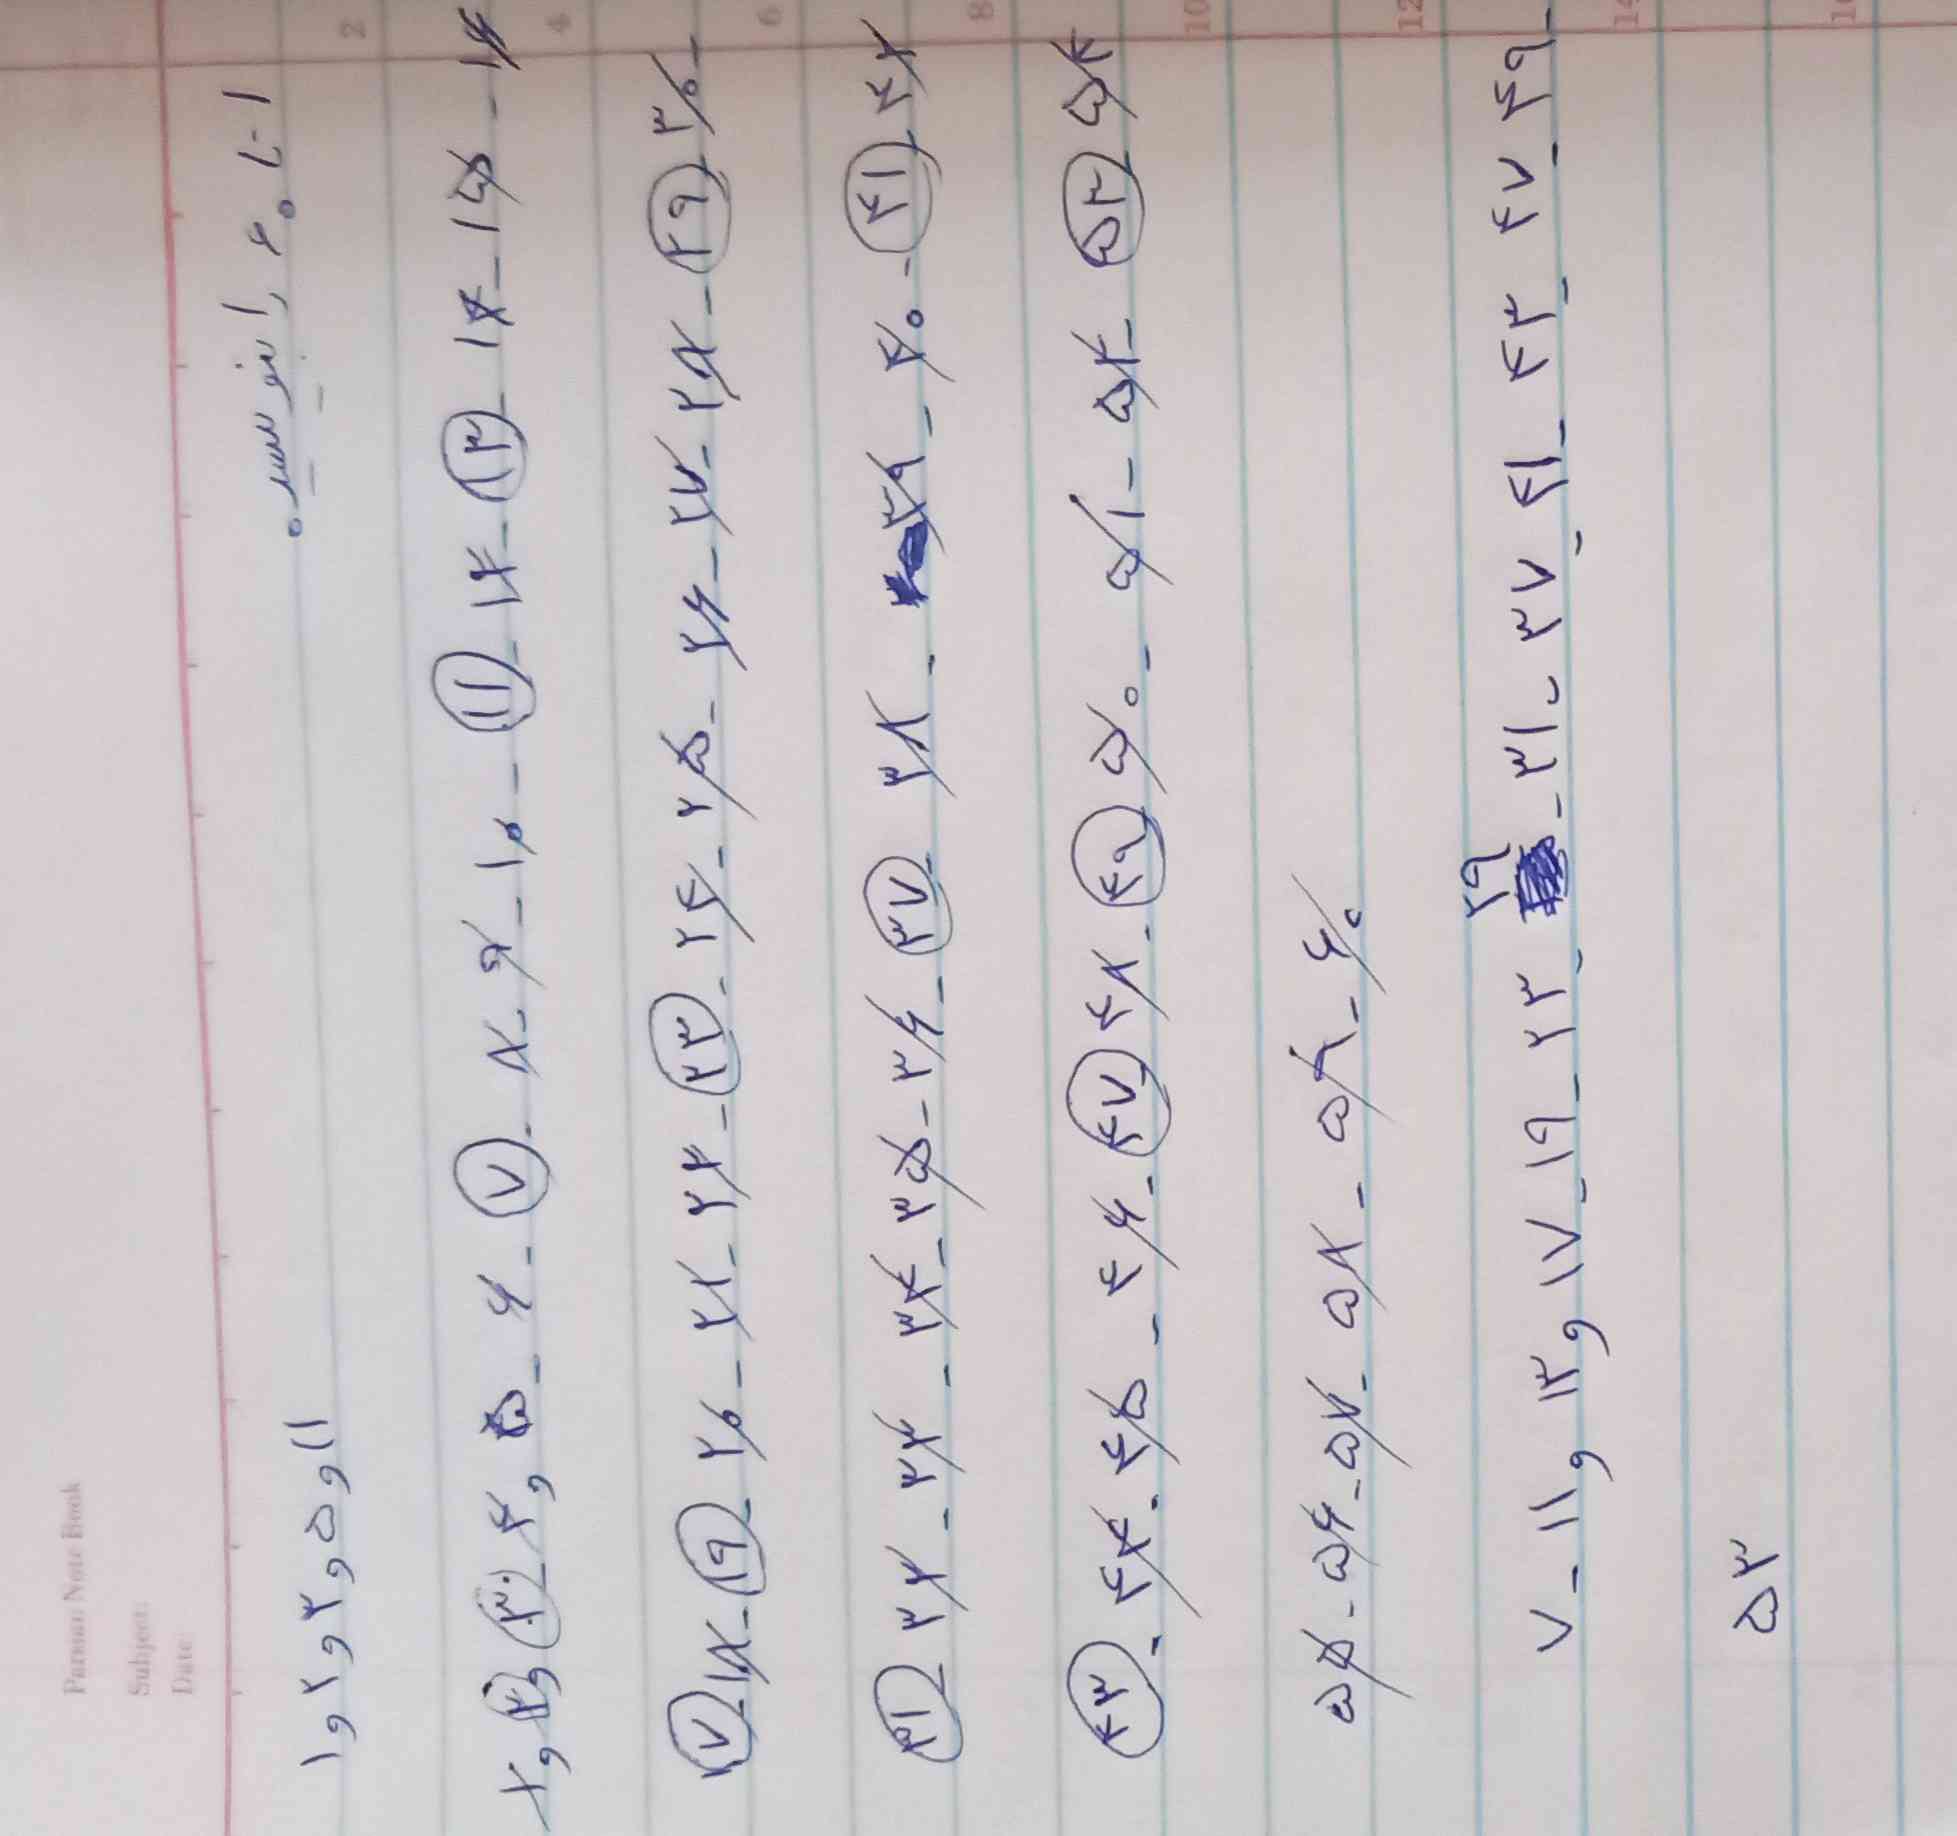 Parnian Note Book
Subject:
Date:
۱ و ۲ و ۳ و ۵ و ۱۱ ۱ تا ۶۰ را بنویسید.
۱ و ۲ و ۳ - ۴ و ۵ - ۶ - ۷ - ۸ - ۹ - ۱۰ - ۱۱ - ۱۲ - ۱۳ - ۱۴ - ۱۵ - ۱۶
۱۷ - ۱۸ - ۱۹ - ۲۰ - ۲۱ - ۲۲ - ۲۳ - ۲۴ - ۲۵ - ۲۶ - ۲۷ - ۲۸ - ۲۹ - ۳۰ -
۳۱ - ۳۲ - ۳۳ - ۳۴ - ۳۵ - ۳۶ - ۳۷ - ۳۸ - ۳۹ - ۴۰ - ۴۱ - ۴۲
۴۳ - ۴۴ - ۴۵ - ۴۶ - ۴۷ - ۴۸ - ۴۹ - ۵۰ - ۵۱ - ۵۲ - ۵۳ - ۵۴
۵۵ - ۵۶ - ۵۷ - ۵۸ - ۵۹ - ۶۰
۷ - ۱۱ و ۱۳ و ۱۷ - ۱۹ - ۲۳ - ۲۹ - ۳۱ - ۳۷ - ۴۱ - ۴۳ - ۴۷ - ۴۹ -
۵۳
2
4
6
8
10
12
14